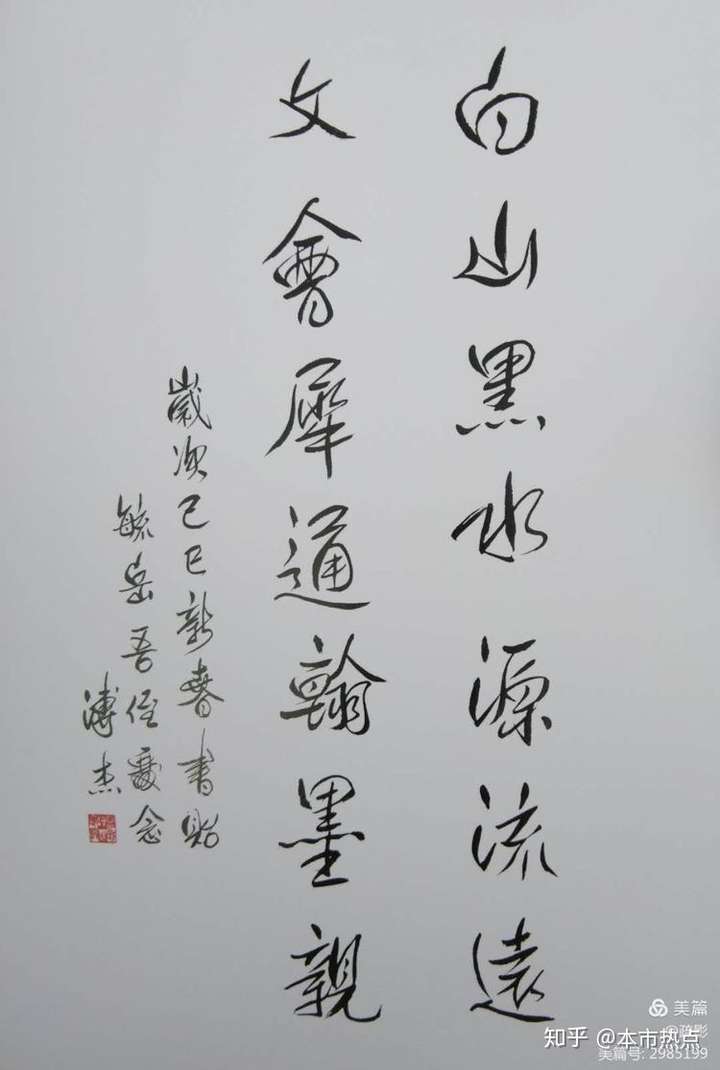 白山黑水源流遠
文會犀通翰墨親
歲次己巳新春書貽
毓岳吾侄愛念
溥杰
美篇
@疏影
知乎 @本市热点
美篇号: 2985199